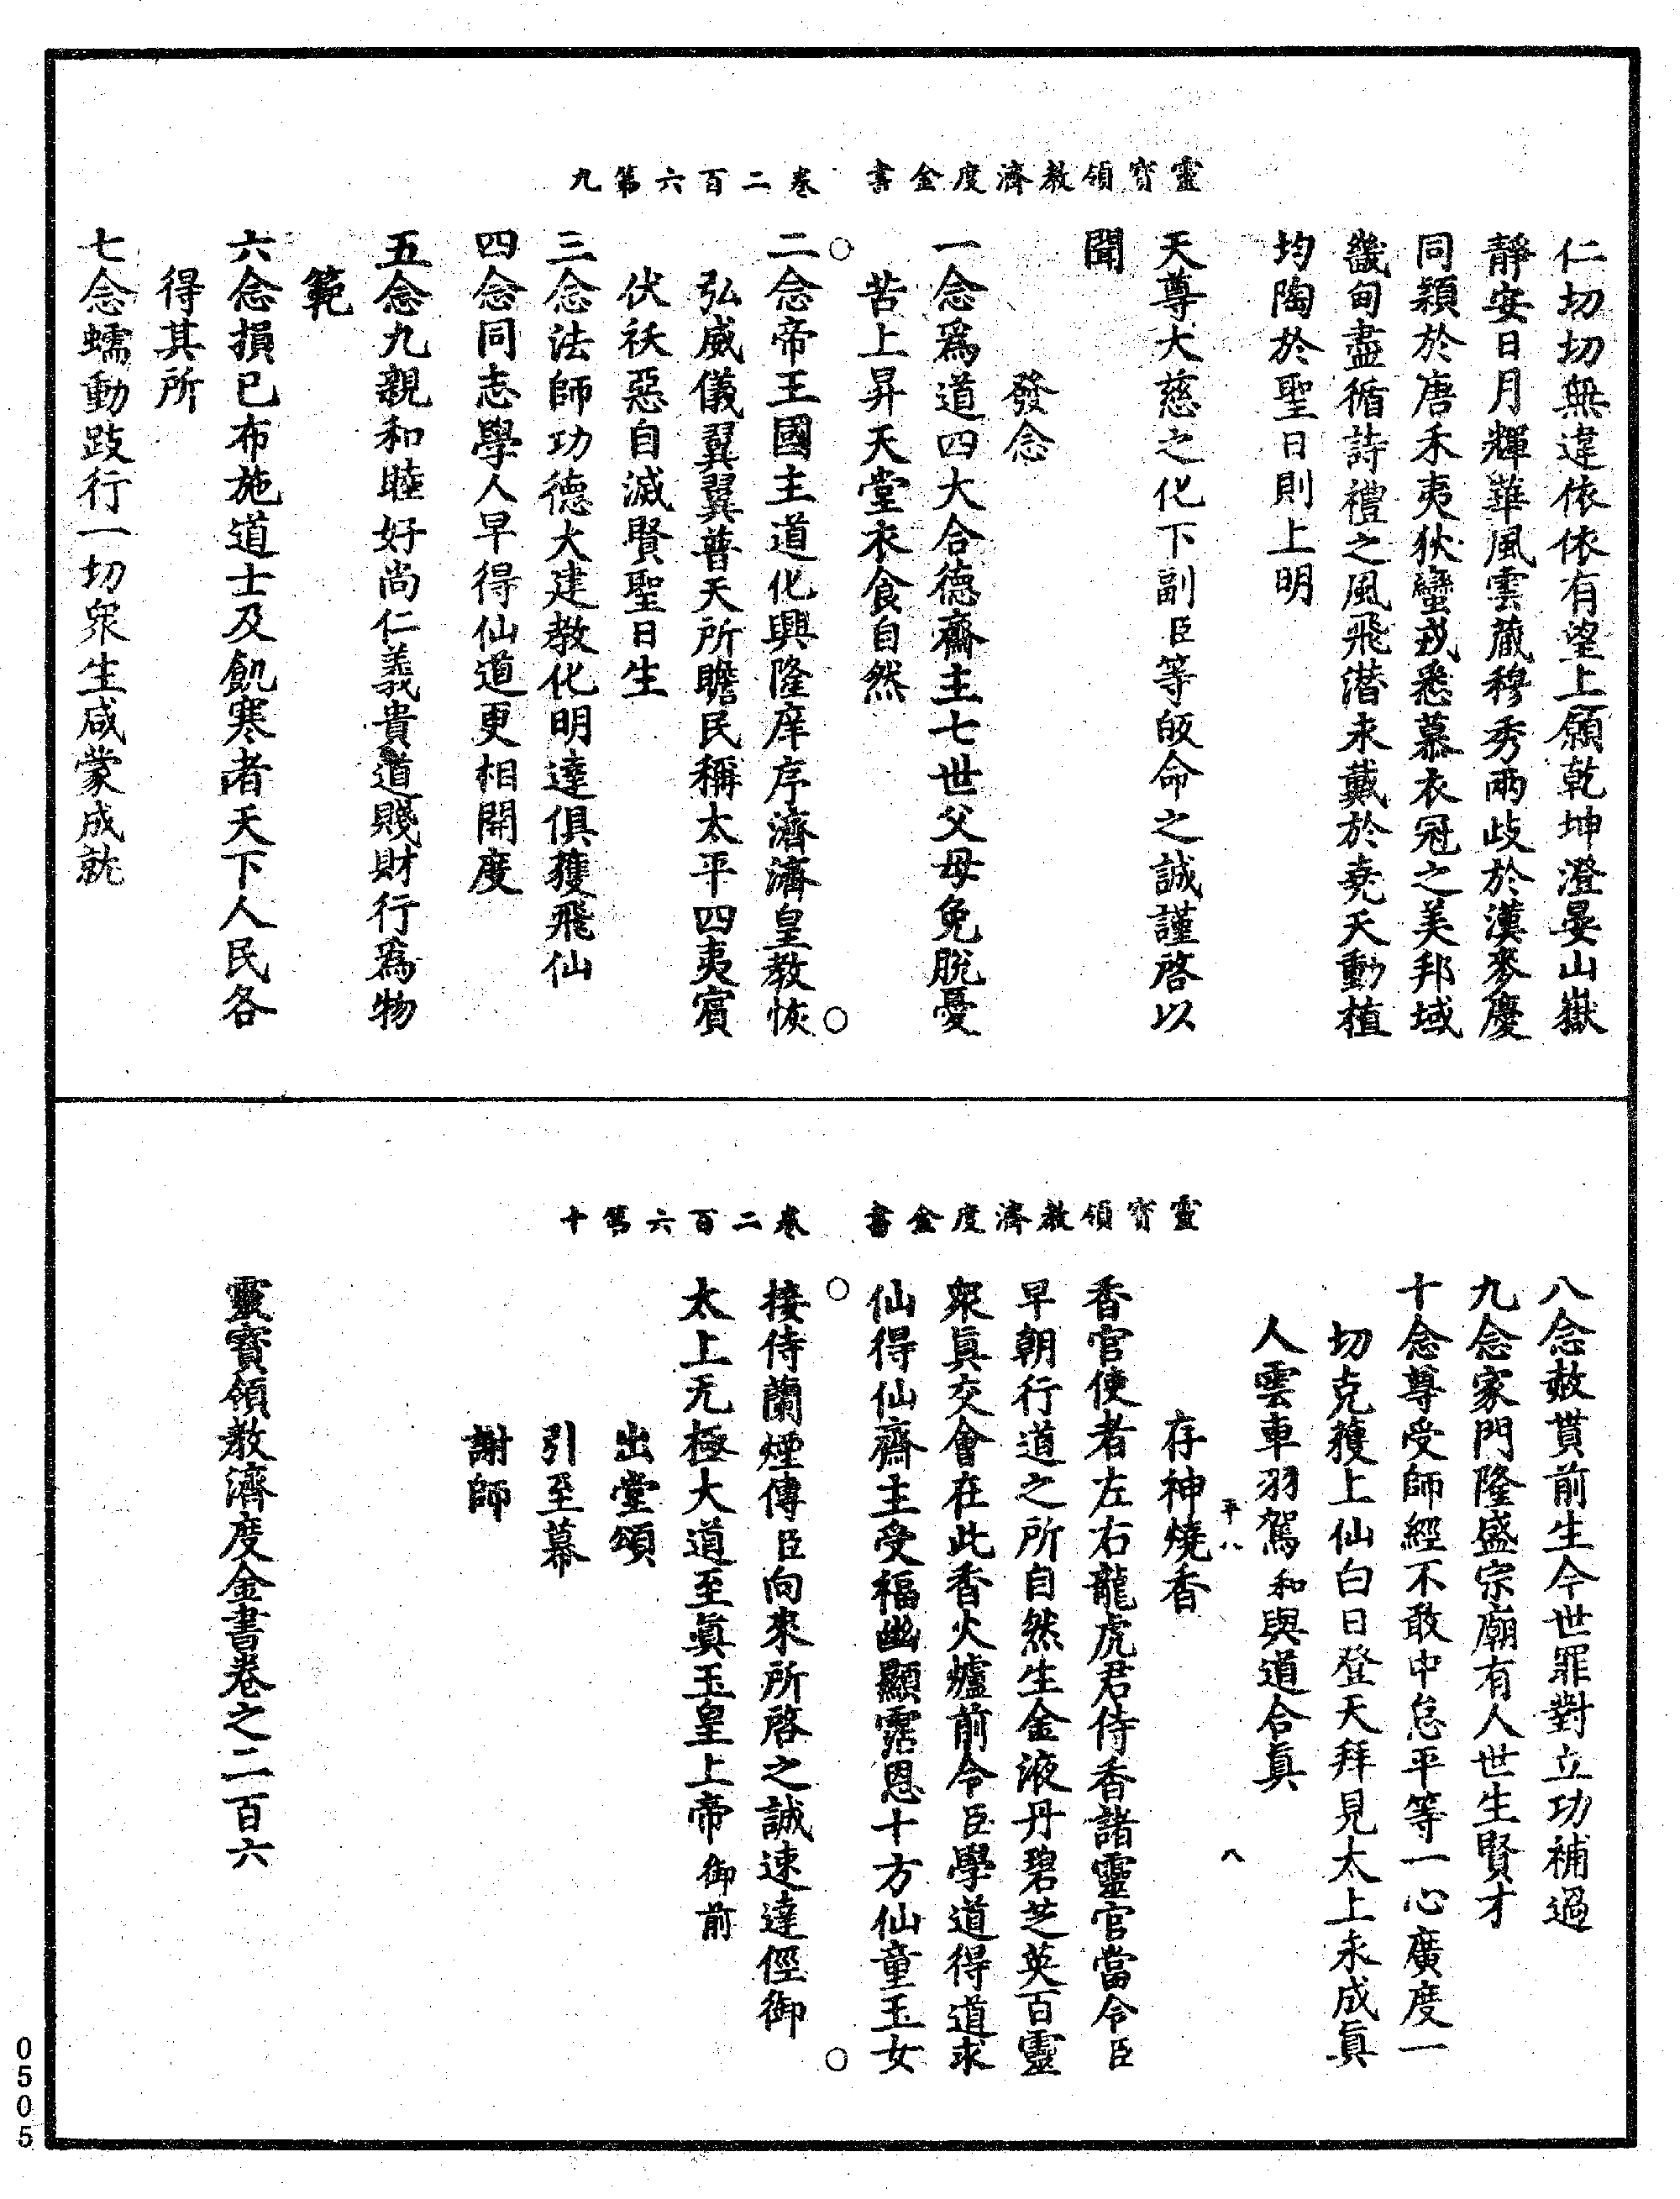 靈寶領教濟度金書　卷二百六第九
仁切切無違依依有望上願乾坤澄晏山嶽
靜安日月輝華風雲蕆穆秀兩歧於漢麥慶
同穎於唐禾夷狄蠻戎悉慕衣冠之美邦域
畿甸盡循詩禮之風飛潛永戴於堯天動植
均陶於聖日則上明
天尊大慈之化下副臣等皈命之誠謹啓以
聞
發念
一念爲道四大合德齋主七世父母免脫憂
苦上昇天堂衣食自然
二念帝王國主道化興隆庠序濟濟皇教恢
弘威儀翼翼普天所瞻民稱太平四夷賓
伏祅惡自滅賢聖日生
三念法師功德大建教化明達俱獲飛仙
四念同志學人早得仙道更相開度
五念九親和睦好尚仁義貴道賤財行爲物
範
六念損已布施道士及飢寒者天下人民各
得其所
七念蠕動跂行一切衆生咸蒙成就
靈寶領教濟度金書　卷二百六第十
八念赦貰前生今世罪對立功補過
九念家門隆盛宗廟有人世生賢才
十念尊受師經不敢中怠平等一心廣度一
切克獲上仙白日登天拜見太上永成眞
人雲車羽駕和與道合眞
平八　八
存神燒香
香官使者左右龍虎君侍香諸靈官當令臣
早朝行道之所自然生金液丹碧芝英百靈
衆眞交會在此香火爐前令臣學道得道求
仙得仙齋主受福幽顯霑恩十方仙童玉女
接侍蘭煙傳臣向來所啓之誠速達徑御
太上无極大道至眞玉皇上帝御前
出堂頌
引至幕
謝師
靈寶領教濟度金書卷之二百六
0505